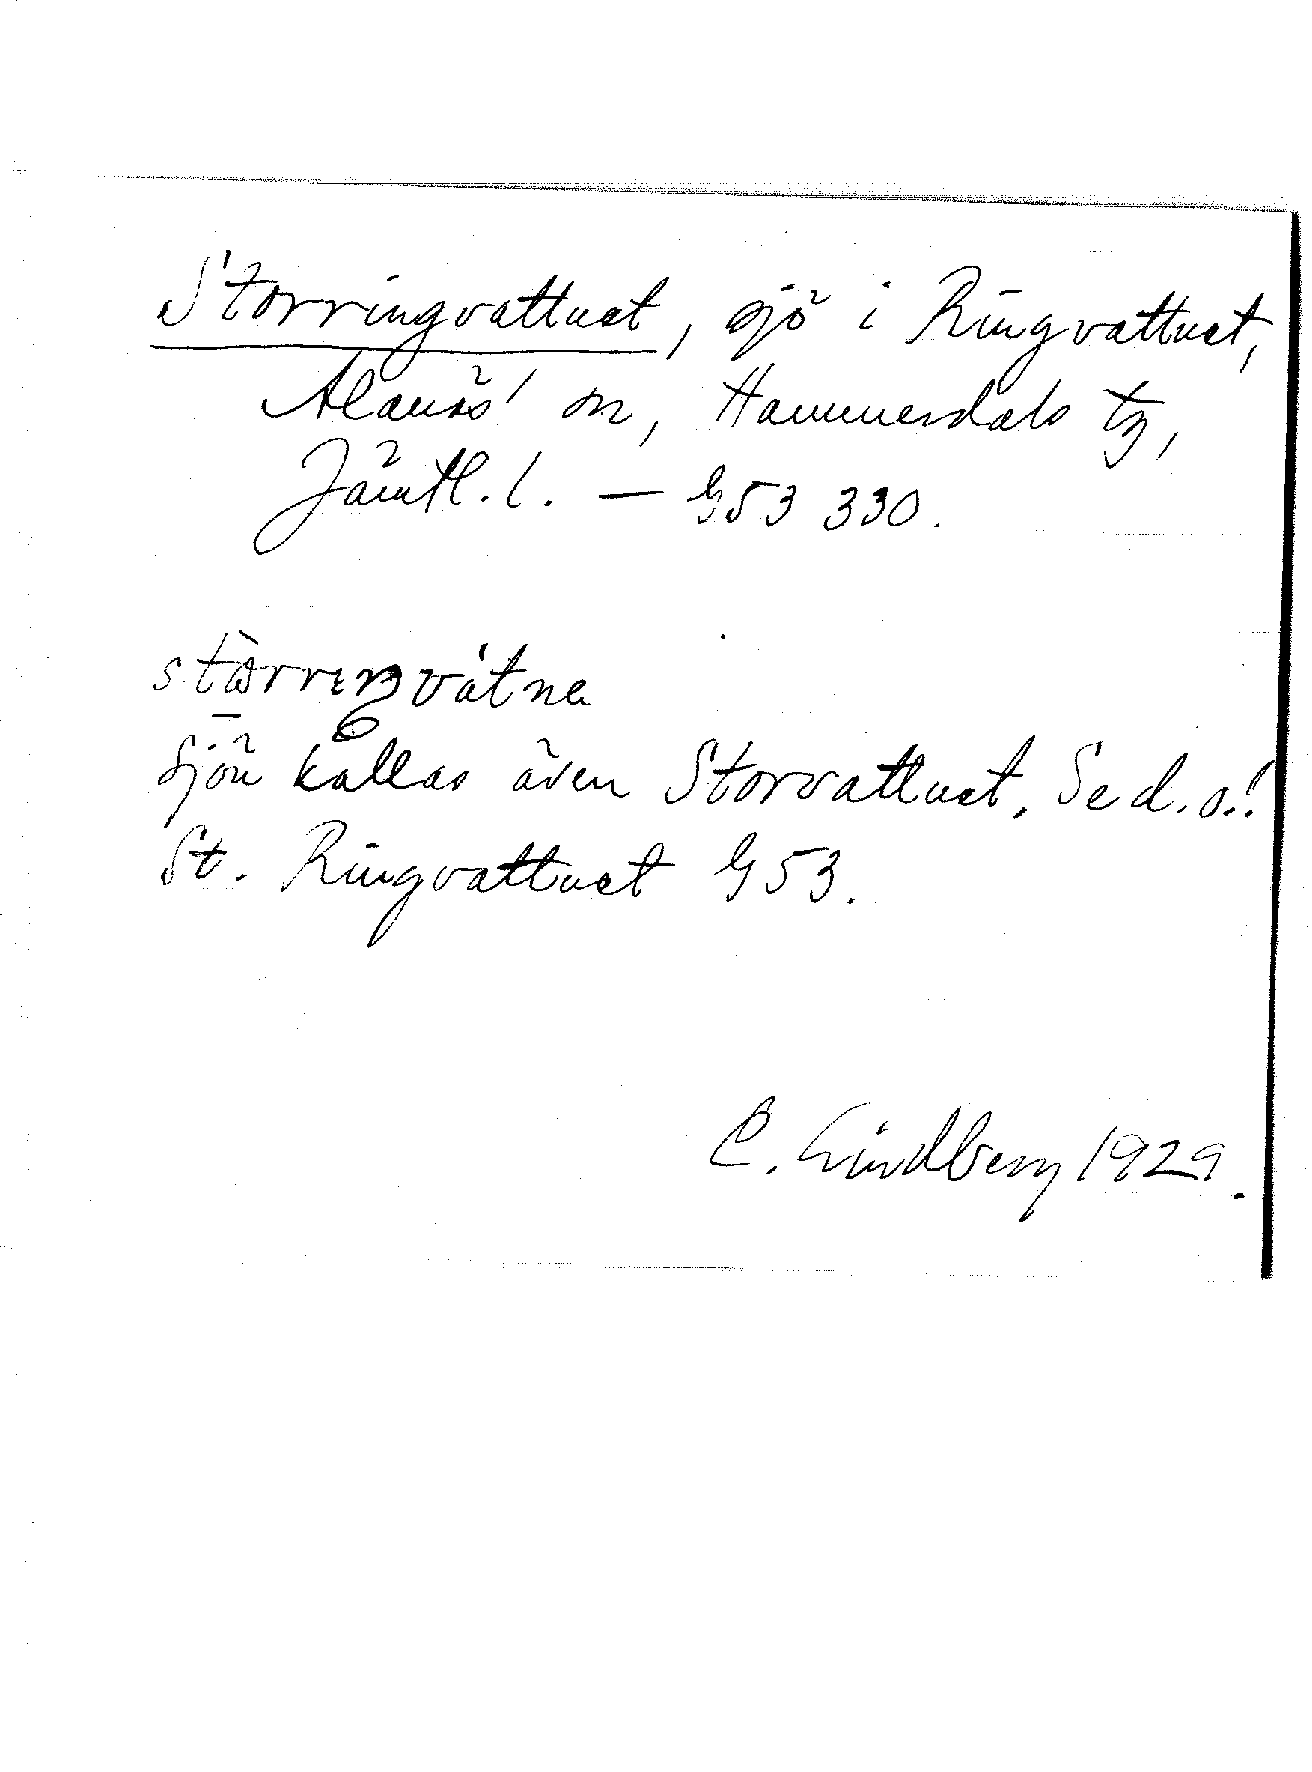 Storringvattnet, sjö i Ringvattnet,
Alanäs' sn, Hammerdals tg,
Jämtl. l. — G53 330.
Sjön kallas även Storvattnet. Se d. o.!
St. Ringvattnet G53.
C. Lindberg 1929.